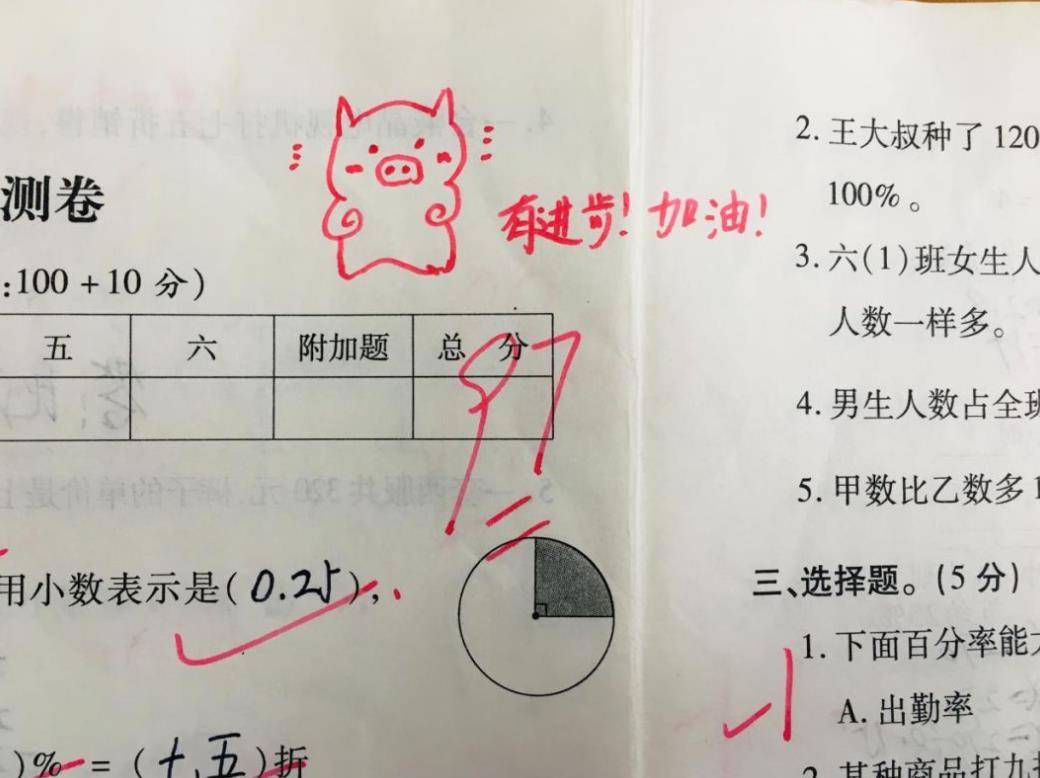 测卷
:100+10 分)
有进步!加油!
五 六 附加题 总 分
97
用小数表示是(0.25),
)% = (七.五)折
2. 王大叔种了 120
100%。
3. 六(1)班女生人
人数一样多。
4. 男生人数占全班
5. 甲数比乙数多 1
三、选择题。(5 分)
1. 下面百分率能大
A. 出勤率
2. 某种商品打九折